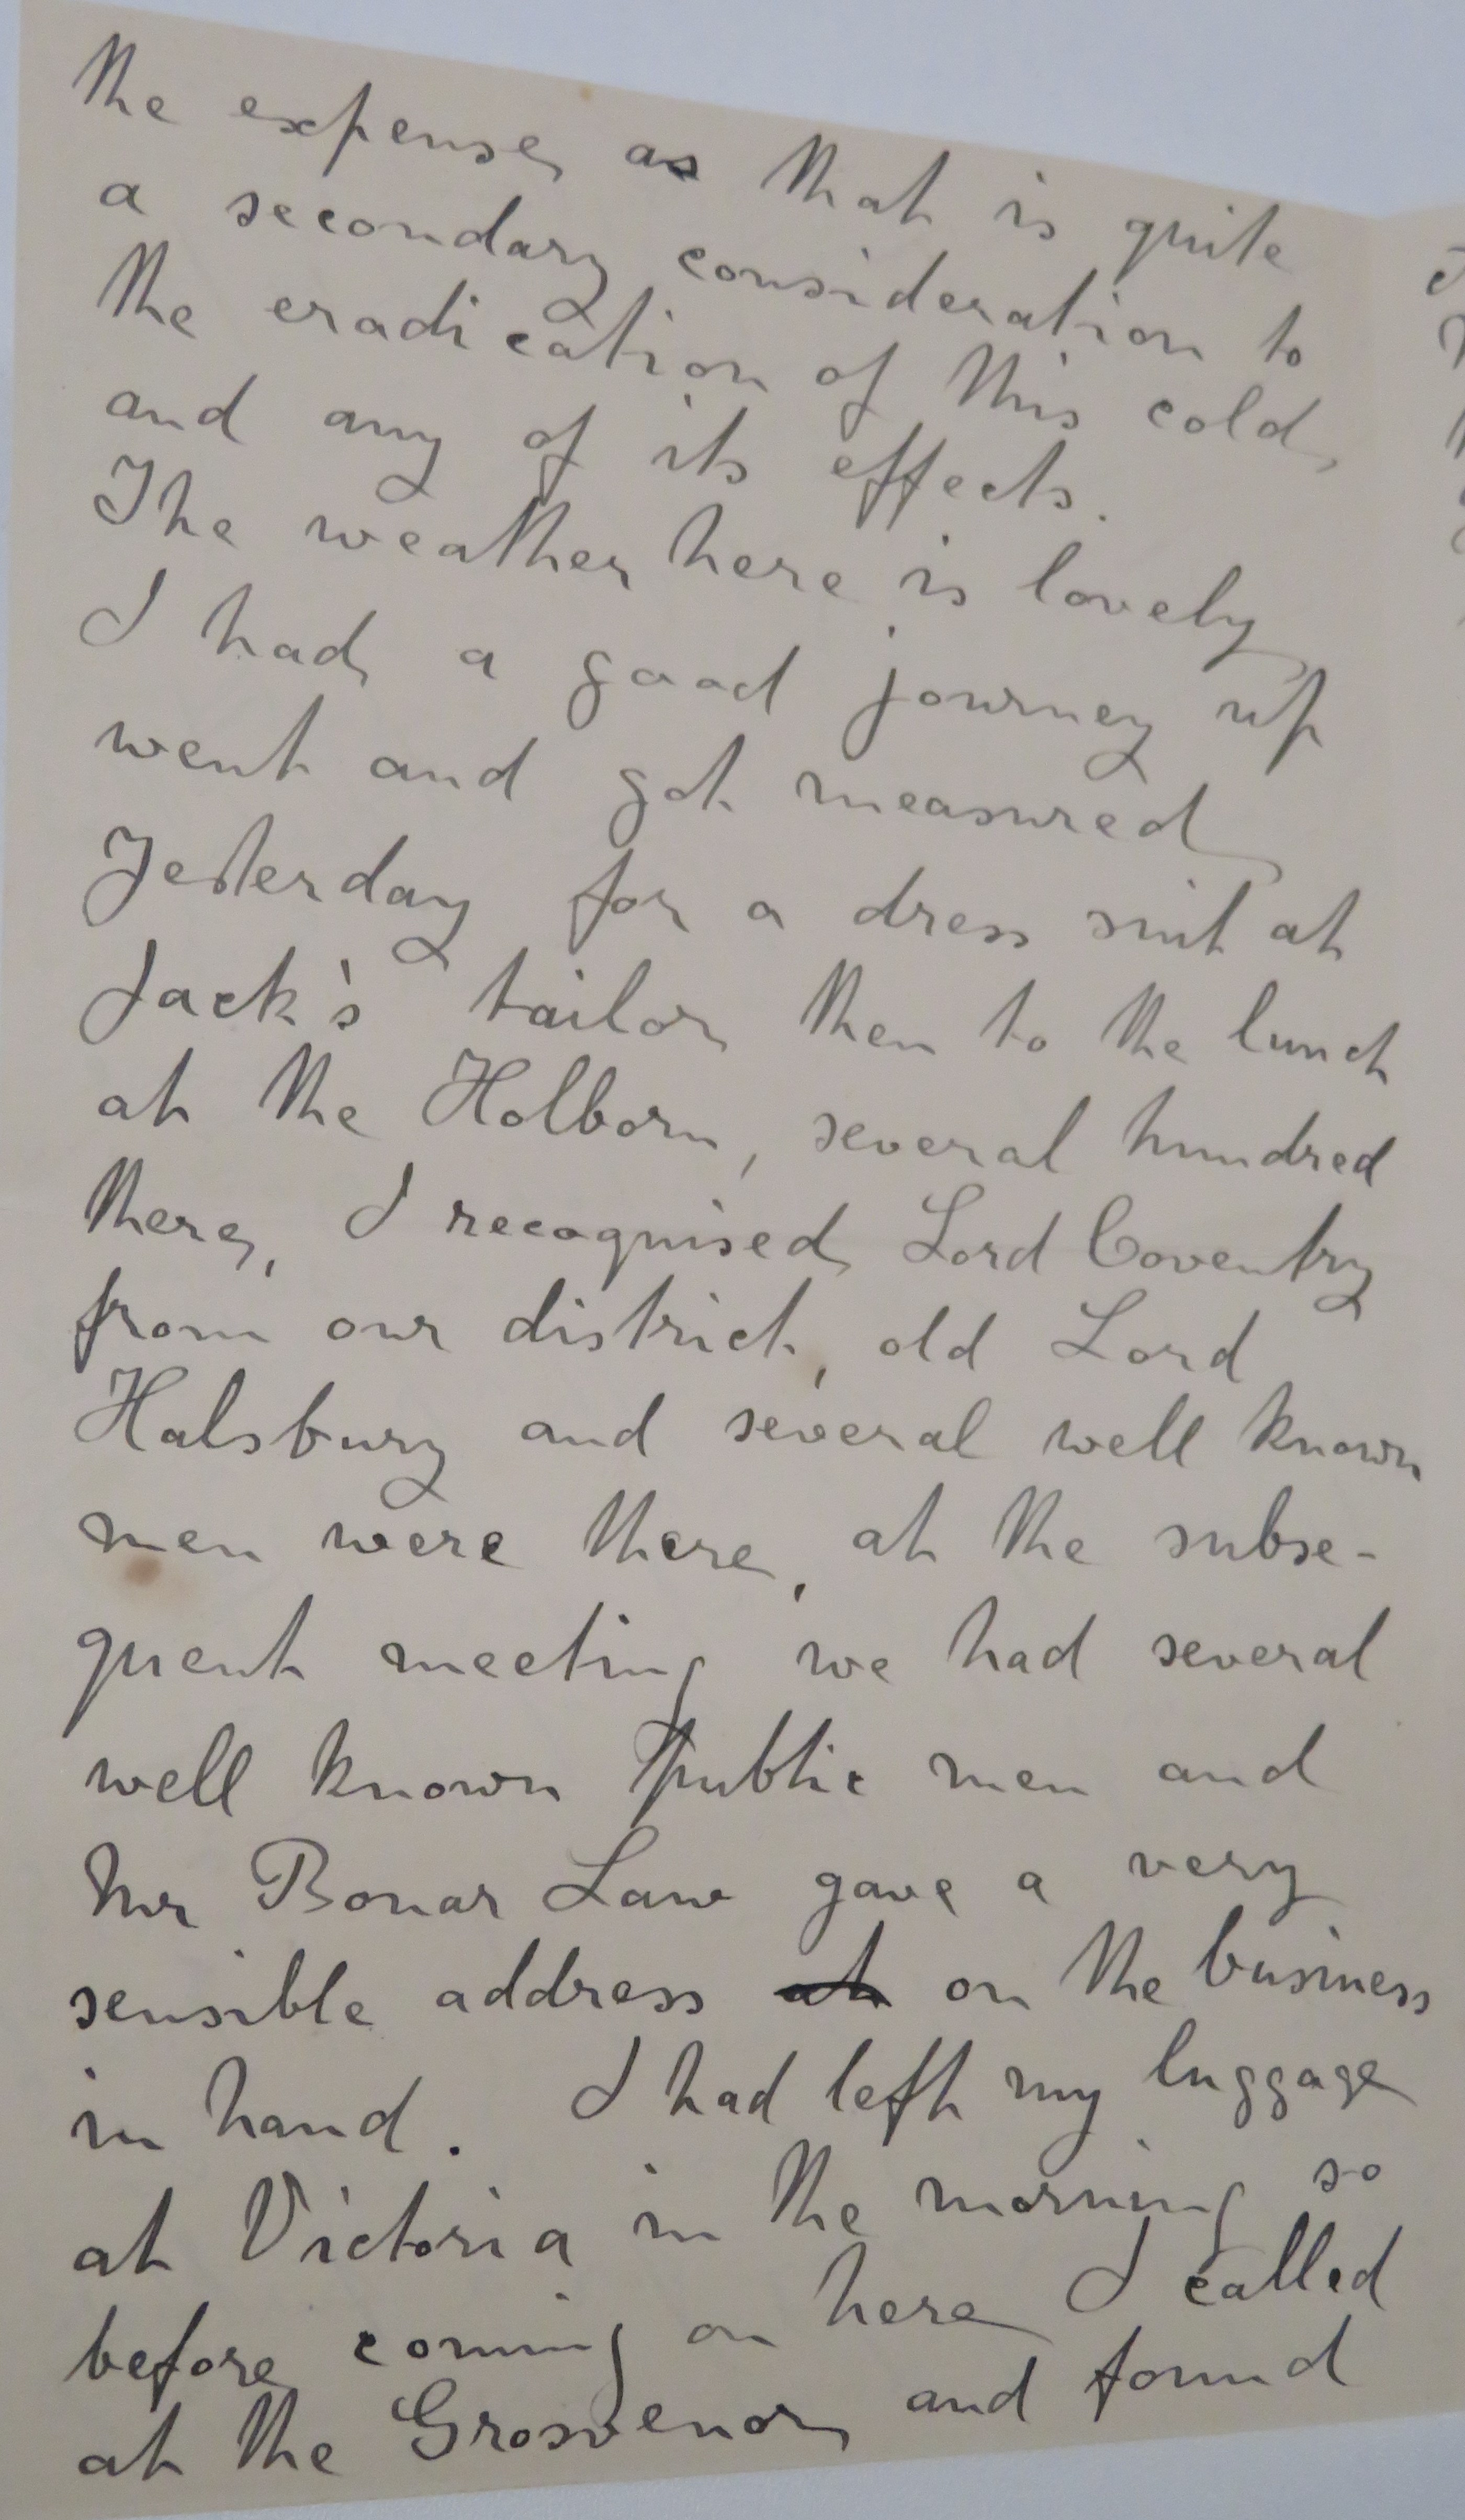 the expense as that is quite
a secondary consideration to
the eradication of this cold
and any of its effects.
The weather here is lovely
I had a good journey up
went and got measured
Yesterday for a dress suit at
Jack's tailor then to the lunch
at the Holborn, several hundred
there, I recognised Lord Coventry
from our district, old Lord
Halsbury and several well known
men were there, at the subse-
quent meeting we had several
well known public men and
Mr Bonar Law gave a very
sensible address at on the business
in hand. I had left my luggage
at Victoria in the morning so
before coming on here I called
at the Grosvenor and found